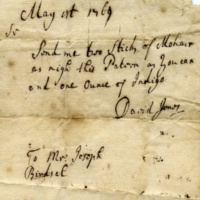 May 1st 1769
Sr
Send me two Sticks of Mohair
as nigh this Patern as you can
and one Ounce of Indigo
David Jones
To Mr Joseph
Birdsel